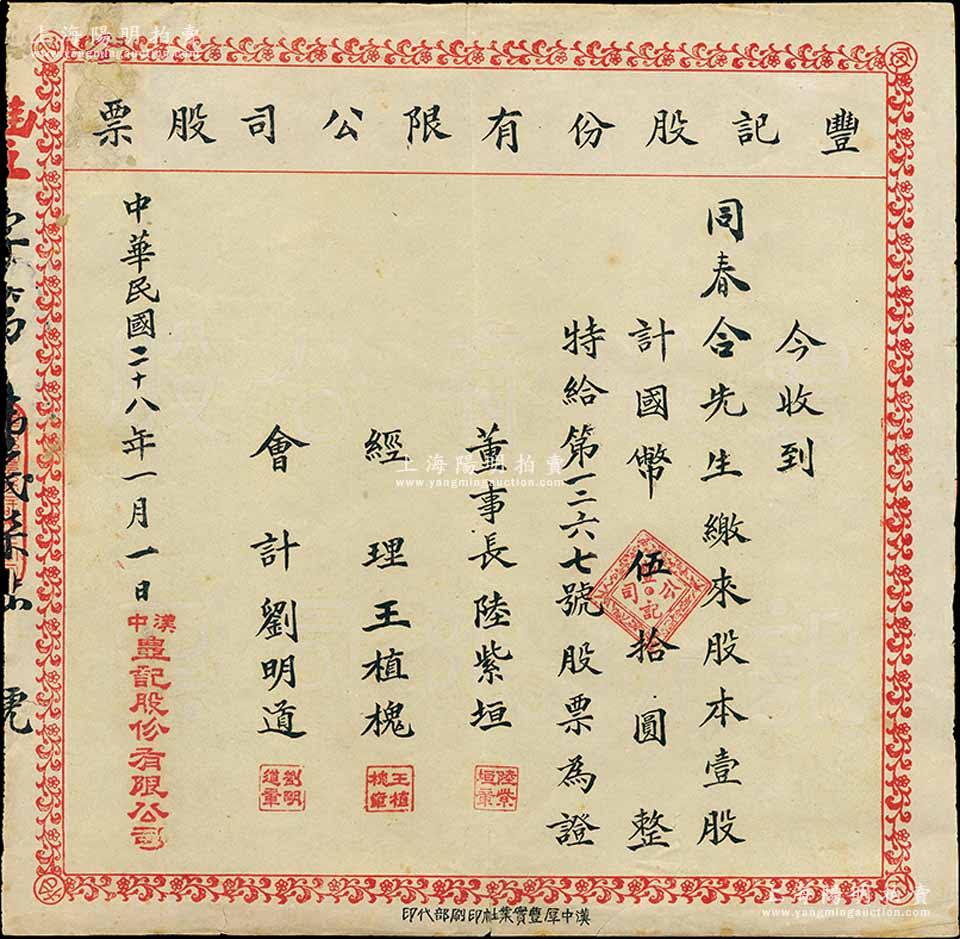 豐記股份有限公司股票
今收到
同春合先生繳來股本壹股
計國幣伍拾圓整
特給第一二六七號股票為證
董事長陸紫垣
陸紫垣章
經理王植槐
王植槐章
會計劉明道
劉明道章
中華民國二十八年一月一日
漢中
豐記股份有限公司
漢中厚豐實業社印刷部代印
上海陽明拍賣
上海陽明拍賣
www.yangmingauction.com
上海陽明拍賣
www.yangmingauction.com